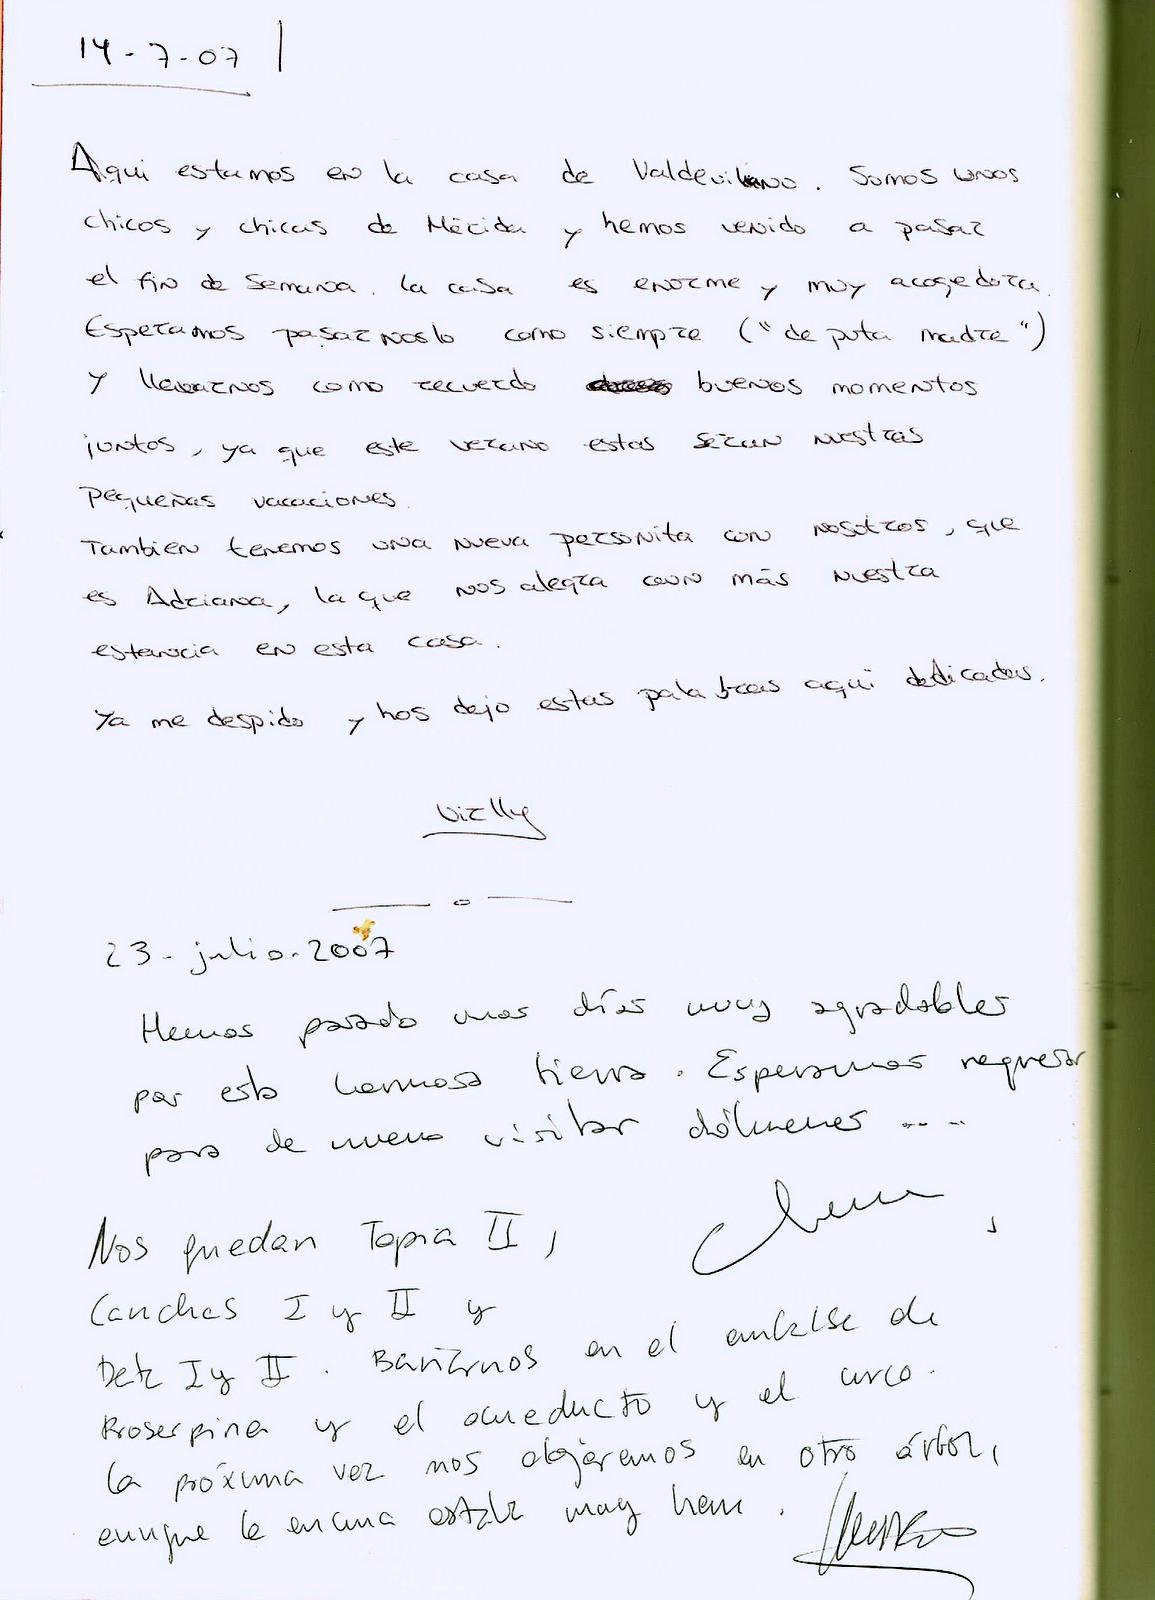 14-7-07
Aqui estamos en la casa de Valdevilano. Somos unos
chicos y chicas de Mérida y hemos venido a pasar
el fin de semana. la casa es enorme y muy acogedora.
Esperamos pasarnoslo como siempre ("de puta madre")
y llevarnos como recuerdo buenos momentos
juntos, ya que este verano estas seran nuestras
pequeñas vacaciones.
Tambien tenemos una nueva personita con nosotros, que
es Adriana, la que nos alegra aun más nuestra
estancia en esta casa.
Ya me despido y hos dejo estas palabras aqui dedicadas.
Virlly
23-julio-2007
Hemos pasado unos días muy agradables
por esta hermosa tierra. Esperamos regresar
para de nuevo visitar dólmenes ....
Nos quedan Tapia II,
Canchas I y II y
I y II. Bañarnos en el embalse de
Proserpina y el acueducto y el arco.
la próxima vez nos alojaremos en otro árbol,
aunque la encina estaba muy bien.